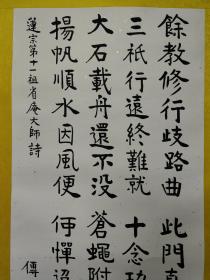 餘教修行歧路曲 此門真
三祇行遠終難就 十念功
大石載舟還不没 蒼蠅附
揚帆順水因風便 何憚迢
蓮宗第十一祖省庵大師詩 傳